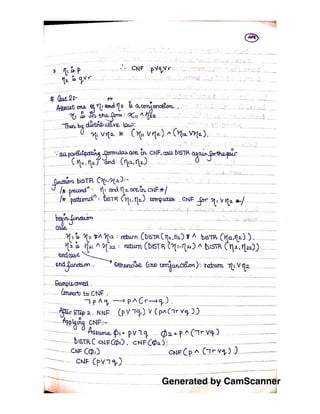 η₁ is p ∴ CNF p∨q∨r
η₂ is q∨r
# Case 2:-
Atleast one of η₁ and η₂ is a conjunction.
η₁ is in the form : η₁₁ ∧ η₁₂
Then by distributive law:
η₁ ∨ η₂ ≡ (η₁₁ ∨ η₂) ∧ (η₁₂ ∨ η₂).
∵ all participating formulas are in CNF, call DISTR again for the pair
(η₁₁, η₂) and (η₁₂, η₂).
function DISTR (η₁, η₂):-
/* precond": η₁ and η₂ are in CNF */
/* postcond": DISTR (η₁, η₂) computes CNF for η₁ ∨ η₂ */
begin function
case
η₁ is η₁₁ ∧ η₁₂ : return (DISTR (η₁₁, η₂) ∧ DISTR (η₁₂, η₂));
η₂ is η₂₁ ∧ η₂₂ : return (DISTR (η₁, η₂₁) ∧ DISTR (η₁, η₂₂))
end case
Otherwise (no conjunction): return η₁ ∨ η₂
end function.
Example contd.
Convert to CNF.
¬p ∧ q → p ∧ (r → q).
After Step 2. NNF (p ∨ ¬q) ∨ (p ∧ (¬r ∨ q))
Applying CNF:-
Assume φ₁ = p ∨ ¬q φ₂ = p ∧ (¬r ∨ q)
DISTR (CNF(φ₁), CNF(φ₂))
CNF (φ₁) CNF (p ∧ (¬r ∨ q))
CNF (p ∨ ¬q)
Generated by CamScanner